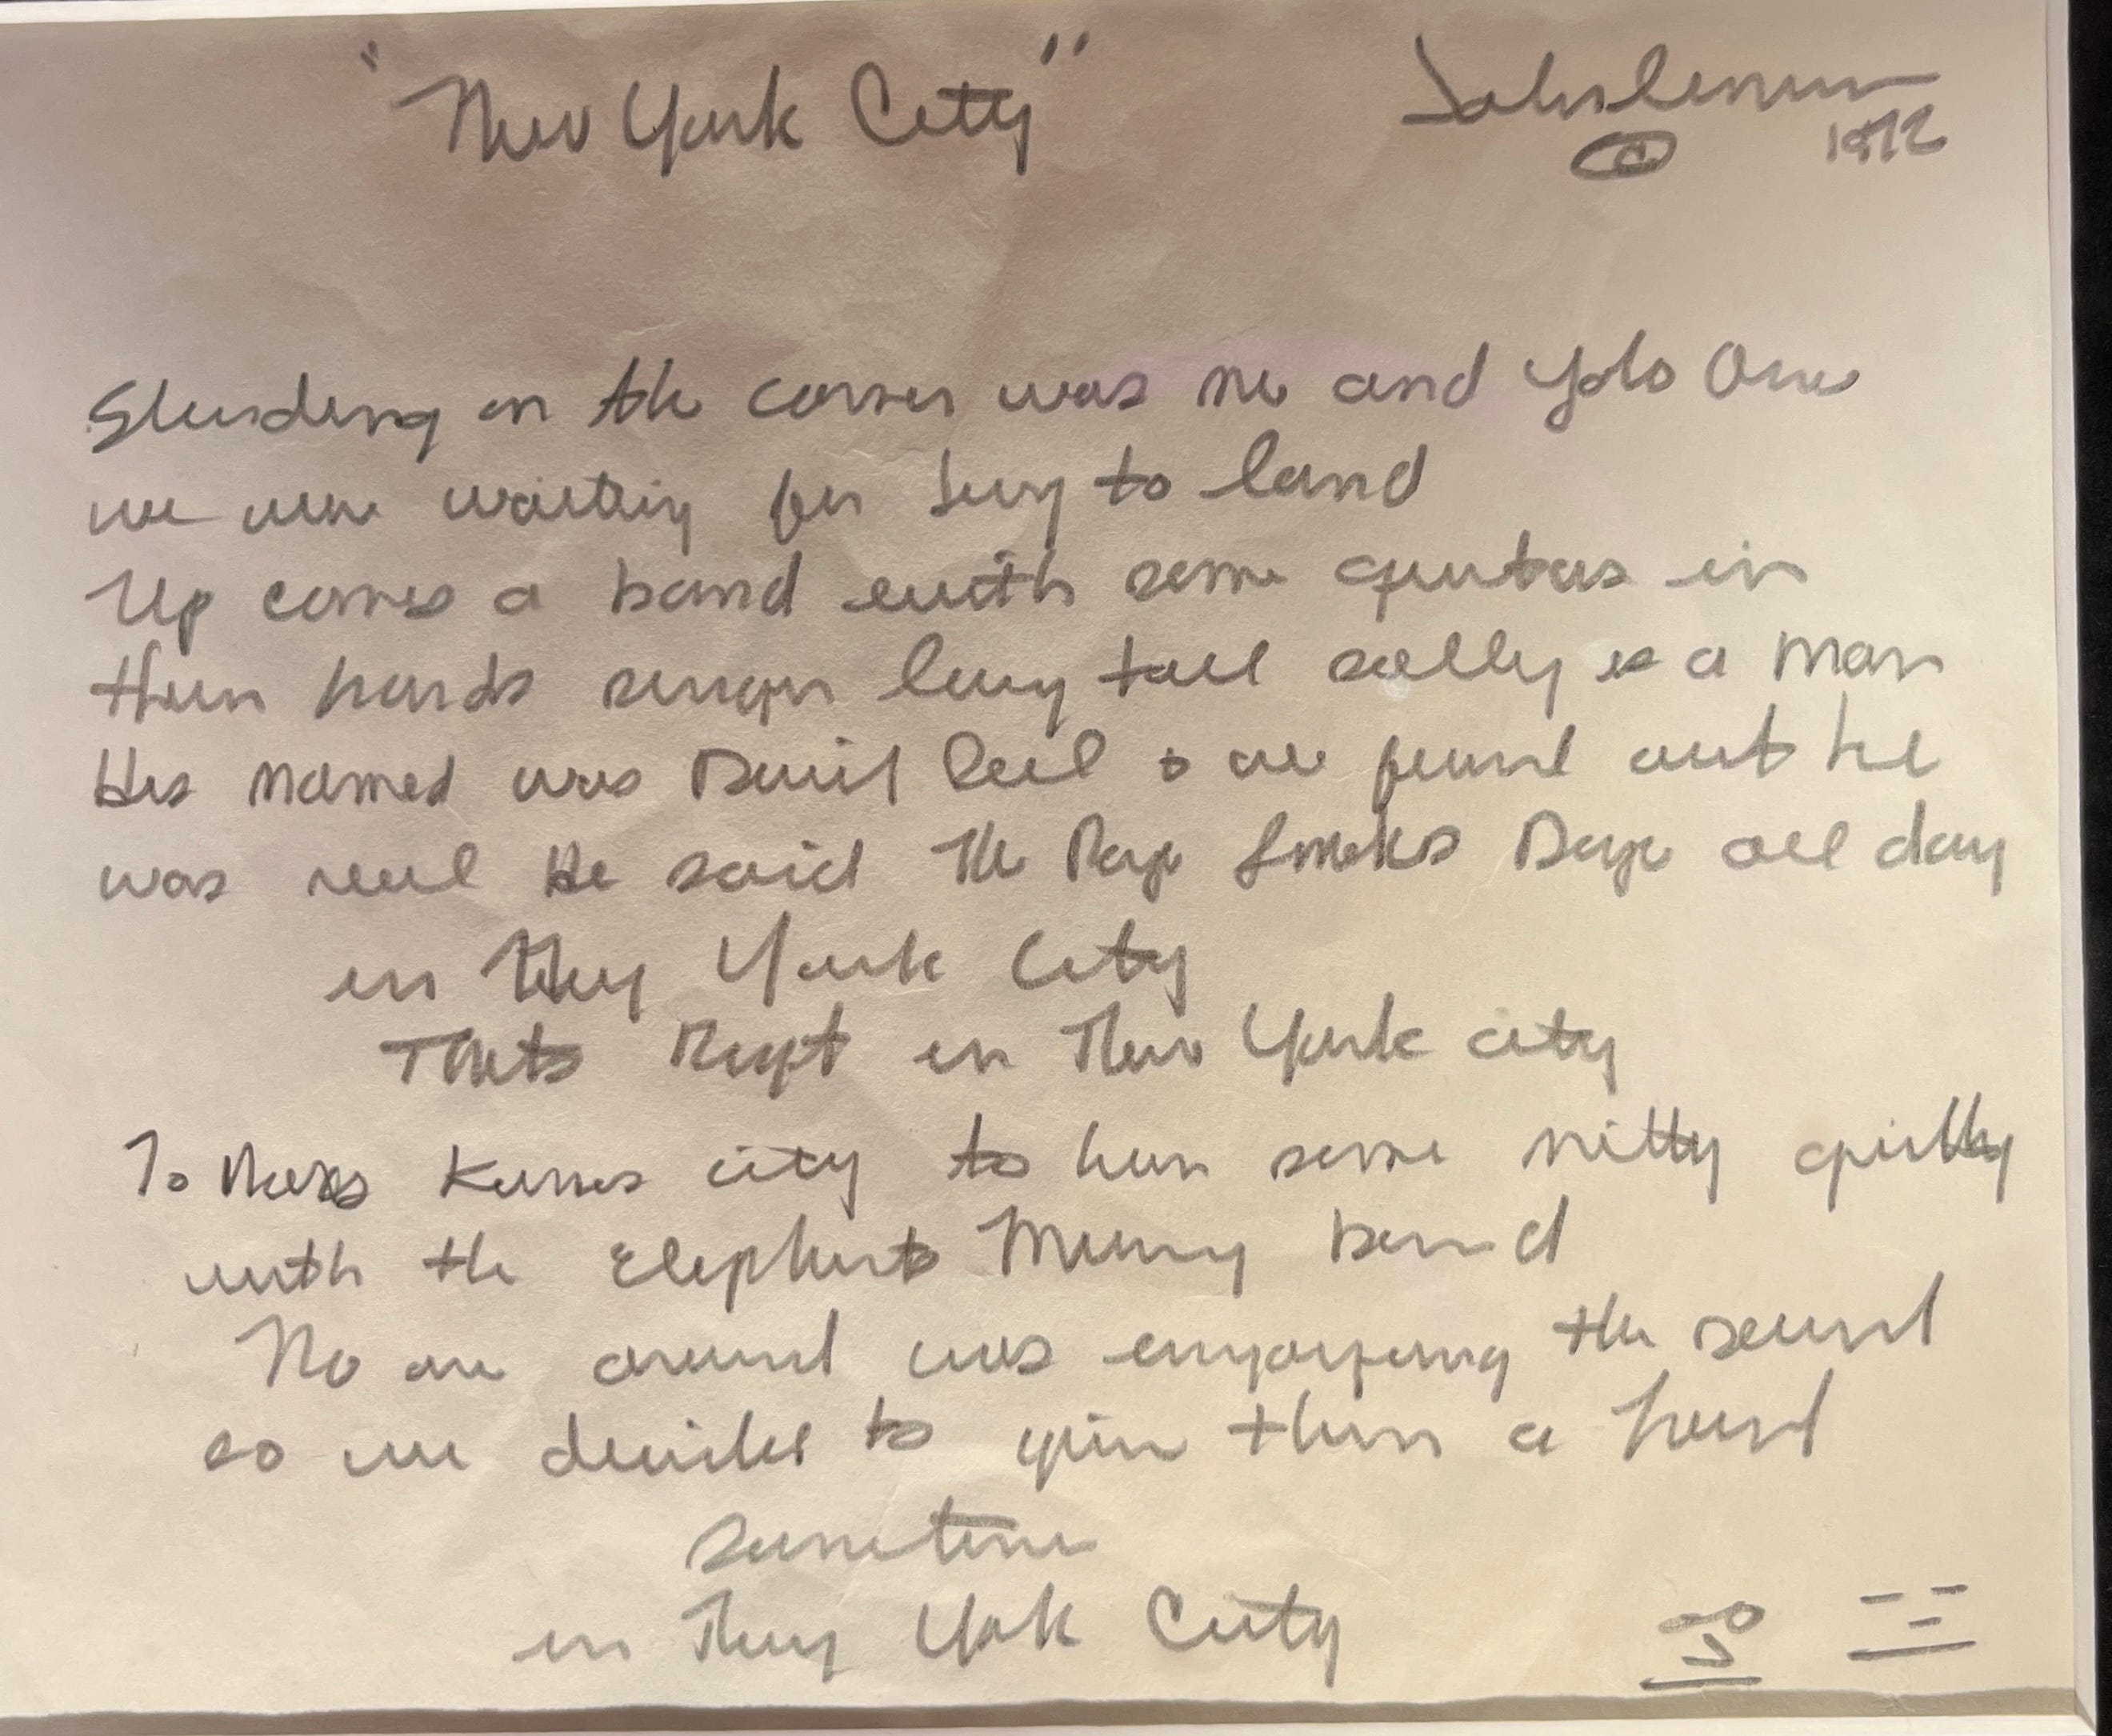 "New York City"
John Lennon
© 1972
Standing on the corner was me and Yoko Ono
we were waiting for Jerry to land
Up comes a band with some guitars in
their hands singin long tall sally is a man
His named was David Peel & we found out he
was real He said The Pope Smokes Dope all day
in New York City
Thats Right in New York city
To Maxs Kansas city to hear some nitty gritty
with the Elephants Memory band
No one around was enjoying the sound
so we decided to give them a hand
sometime
in New York City